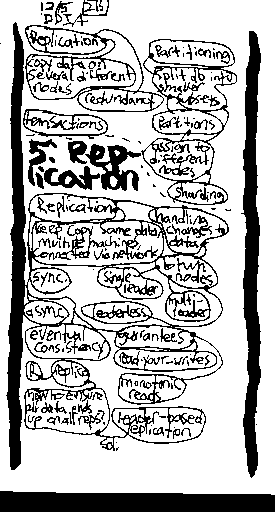 12/5
DDIA
Replication
Partitioning
copy data on
several different
nodes
Split db into
smaller
subsets
redundancy
transactions
Partitions
5. Rep-
lication
assign to
different
nodes
Sharding
Replication
handling
changes to
data
Keep copy same data
multiple machines
connected via network
btwn
nodes
sync.
single
leader
multi
leader
async
leaderless
eventual
consistency
guarantees
read-your-writes
replica
monotonic
reads
how to ensure
all data ends
up on all reps?
leader-based
replication
sol: